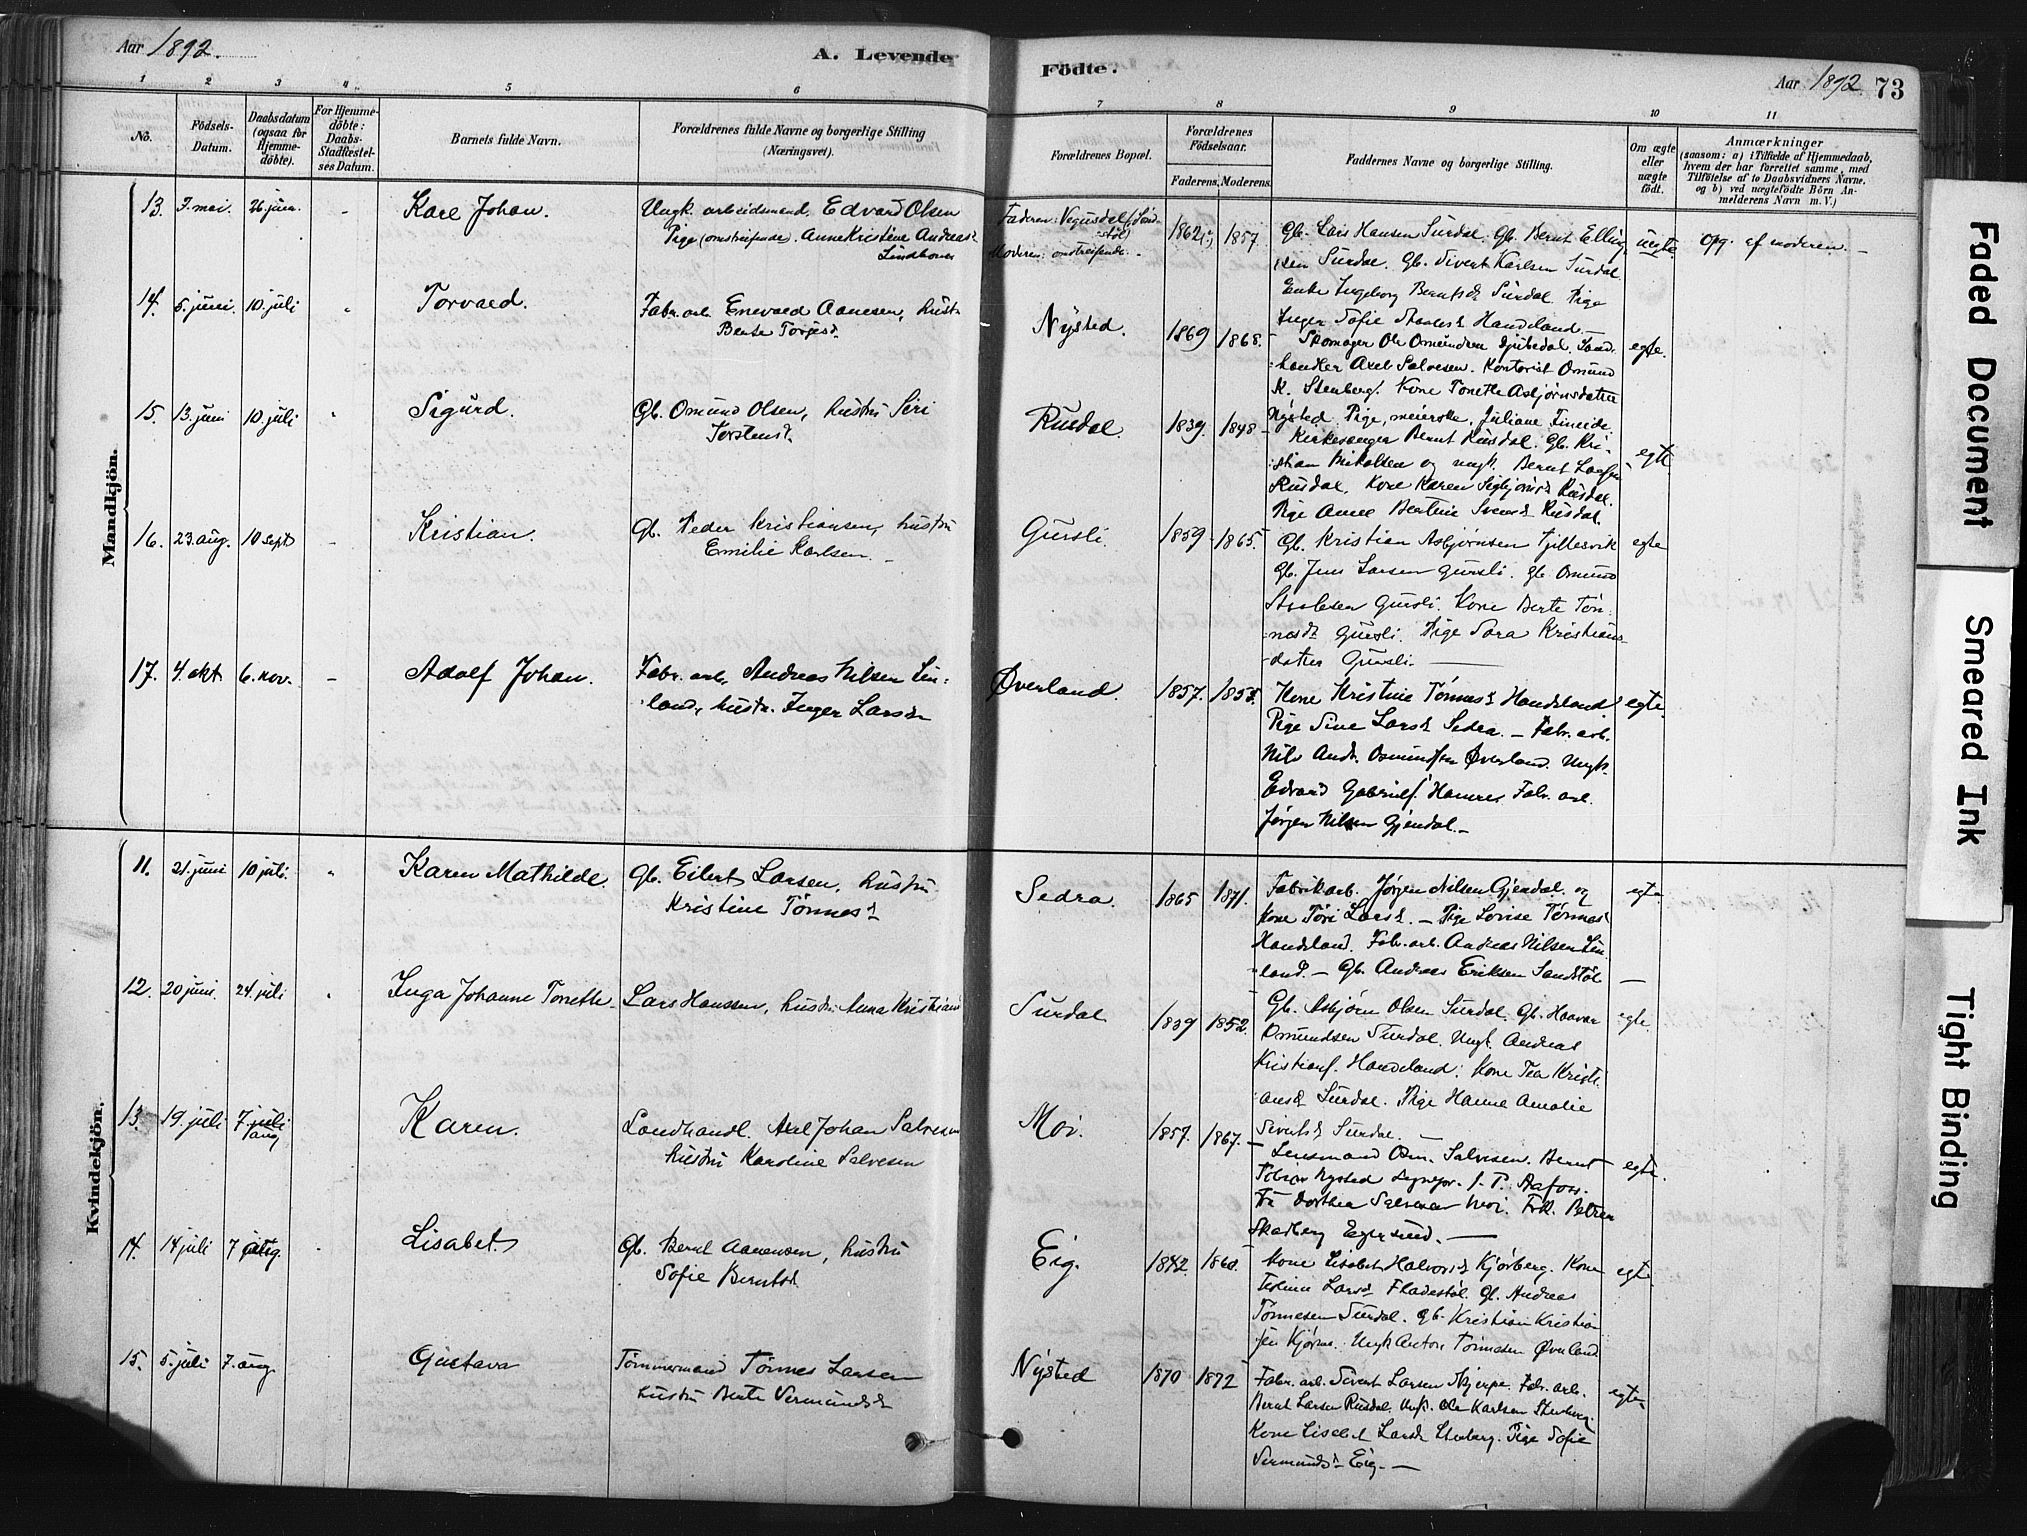 Aar 1892.
A. Levende
Födte.
Aar 1892
73
1 2 3 4 5 6 7 8 9 10 11
No.
Födsels-
Datum.
Daabsdatum
(ogsaa för
Hjemme-
döbte).
For Hjemme-
döbte:
Daabs-
Stadfæstel-
ses Datum.
Barnets fulde Navn.
Forældrenes fulde Navne og borgerlige Stilling
(Næringsvei).
Forældrenes Bopæl.
Forældrenes
Födselsaar.
Faderens. Moderens.
Faddernes Navne og borgerlige Stilling.
Om ægte
eller
uægte
födt.
Anmærkninger
(saasom: a) i Tilfælde af Hjemmedaab,
hvem der har forrettet samme, med
Tilföielse af to Daabsvidners Navne,
og b) ved uægtefödte Börn An-
melderens Navn m. V.)
Mandkjön.
13. 7. mai. 26 juni. - Karl Johan.
Ungk. arbeidsmand, Edvard Olsen
Pige (omstreifende). Anne Kristine Andreasd.
Faderen: Vegusdal
Moderen: omstreifende.
1862(?) 1857
Gb. Lars Hansen Surdal. Gb. Bernt Elling-
sen Surdal. Gb. Sivert Karlsen Surdal.
Enke Ingeborg Berntsd. Surdal. Pige
Inger Sofie Handeland.
uegte
Opg. af moderen. -
14. 5. juni. 10. juli " Torvald.
Fabr. arb. Enevald Aanesen, hustr.
Bente Torjesd.
Nysted. 1869 1868.
Skomager Ole Omundsen Djubedal. Land-
handler Axel Salvesen. Kontorist Omund
K. Stenberg. Kone Tonette Asbjørnsdatter
Nysted. Pige, meierske, Juliane
egte.
15. 13. juni 10. juli " Sigurd.
Gb. Omund Olsen, hustru Siri
Torstensd.
Rusdal. 1839. 1848
Kirkesanger Bernt Rusdal. Gb. Kri-
stian Mikalsen og ungk. Bernt
Rusdal. Kone Karen Rusdal.
Pige Anne Bertine Rusdal.
egte.
16. 23. aug. 10 sept - Kristian.
Gb. Peder Kristiansen, hustru
Emilie Karlsen
Gursli. 1859 1865.
Gb. Kristian Asbjørnsen
Gb. Jens Larsen Gursli. Gb. Omund
Gursli. Kone Berte Tøn-
nesd. Gursli. Pige Sara Kristians-
datter Gursli. -
egte
17. 4. okt 6. nov. - Adolf Johan.
Fabr. arb. Andreas Nilsen Lin-
land, hustr. Inger Larsd.
Øverland 1857. 1855.
Kone Kristine Tønnesd. Handeland
Pige Sine Larsd. Sedra. - Fabr. arb.
Nils Andr. Omundsen Øverland. Ungk.
Edvard Gabriels. Fabr. arb.
Jørgen Nilsen Gjendal. -
egte.
Kvindekjön.
11. 21. juni 10 juli. " Karen Mathilde.
Gb. Eilert Larsen, hustru
Kristine Tønnesd.
Sedra. 1865 1871.
Fabrikarb. Jørgen Nilsen Gjendal og
kone Tøri Larsd. - Pige Lovise Tønnesd.
Handeland. Fabr. arb. Andreas Nilsen Lin-
land. - Gb. Andreas Eriksen Sandstøl -
egte
12. 20 juni. 24. juli " Inga Johanne Tonette
Lars Hanssen, hustr. Anna Kristians
Surdal 1839 1852.
Gb. Asbjørn Olsen Surdal. Gb. Haavar
Omundsen Surdal. Ungk. Andreas
Kristians. Handeland. Kone Tea Kristi-
ansd. Surdal. Pige Hanne Amalie
Sivertsd. Surdal. -
egte.
13. 19. juli 7. juli
aug
Karen.
Landhandl. Axel Johan Salvesen
hustru Karoline Salvesen
Moi. 1857. 1867.
Lensmand Om. Salvesen. Bernt
Tobias Nysted
Fru Dorthea Salvesen Moi. Frk. Petrea
Skadberg Egersund. -
egte.
14. 14 juli 7 aug. " Lisabet
Gb. Bernt Aanensen, hustru
Sofie Berntsd.
Eig. 1842. 1860.
Kone Lisabet Halvorsd. Kjørberg. Kone
Larsd. Fladestøl. Gb. Andreas
Tønnesen Surdal. Gb. Kristian Kristian-
sen Ungk. Anton Tønnesen Øverland.
egte
15. 5. juli 7. aug Gustava
Tømmermand Tønnes Larsen
hustru Berte Vermundsd.
Nysted 1870 1872
Fabr. arb. Sivert Larsen Skjerpe. Fabr. arb.
Bernt Larsen Rusdal. Ungk. Ole Karlsen Stenberg.
Kone Lisabet Larsd. Stenberg. Pige Sofie
Vermundsd. Eig. -
egte
Faded Document
Smeared Ink
Tight Binding